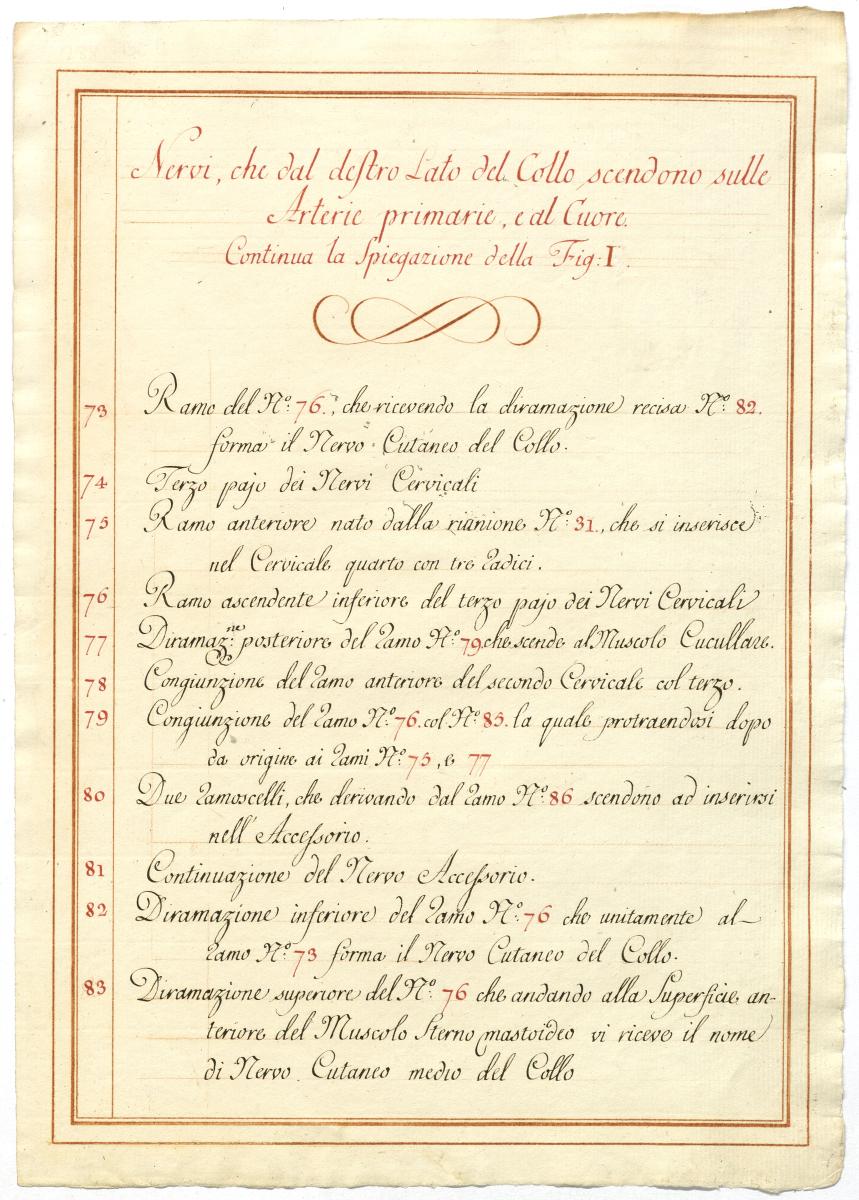 Nervi, che dal deſtro Lato del Collo scendono sulle
Arterie primarie, e al Cuore.
Continua la Spiegazione della Fig: I.
73 Ramo del N.º 76., che ricevendo la diramazione recisa N.º 82.
forma il Nervo Cutaneo del Collo.
74 Terzo pajo dei Nervi Cervicali
75 Ramo anteriore nato dalla riunione N.º 31., che si inserisce
nel Cervicale quarto con tre Radici.
76 Ramo ascendente inferiore del terzo pajo dei Nervi Cervicali
77 Diramaz:ne posteriore del Ramo N.º 79 che scende al Muscolo Cucullare.
78 Congiunzione del Ramo anteriore del secondo Cervicale col terzo.
79 Congiunzione del Ramo N.º 76. col N.º 85. la quale protraendosi dopo
da origine ai Rami N.º 75, e 77
80 Due Ramoscelli, che derivando dal Ramo N.º 86 scendono ad inserirsi
nell' Acceſsorio.
81 Continuazione del Nervo Acceſsorio.
82 Diramazione inferiore del Ramo N.º 76 che unitamente al-
Ramo N.º 73 forma il Nervo Cutaneo del Collo.
83 Diramazione superiore del N.º 76 che andando alla Superficie an-
teriore del Muscolo Sterno mastoideo vi riceve il nome
di Nervo Cutaneo medio del Collo